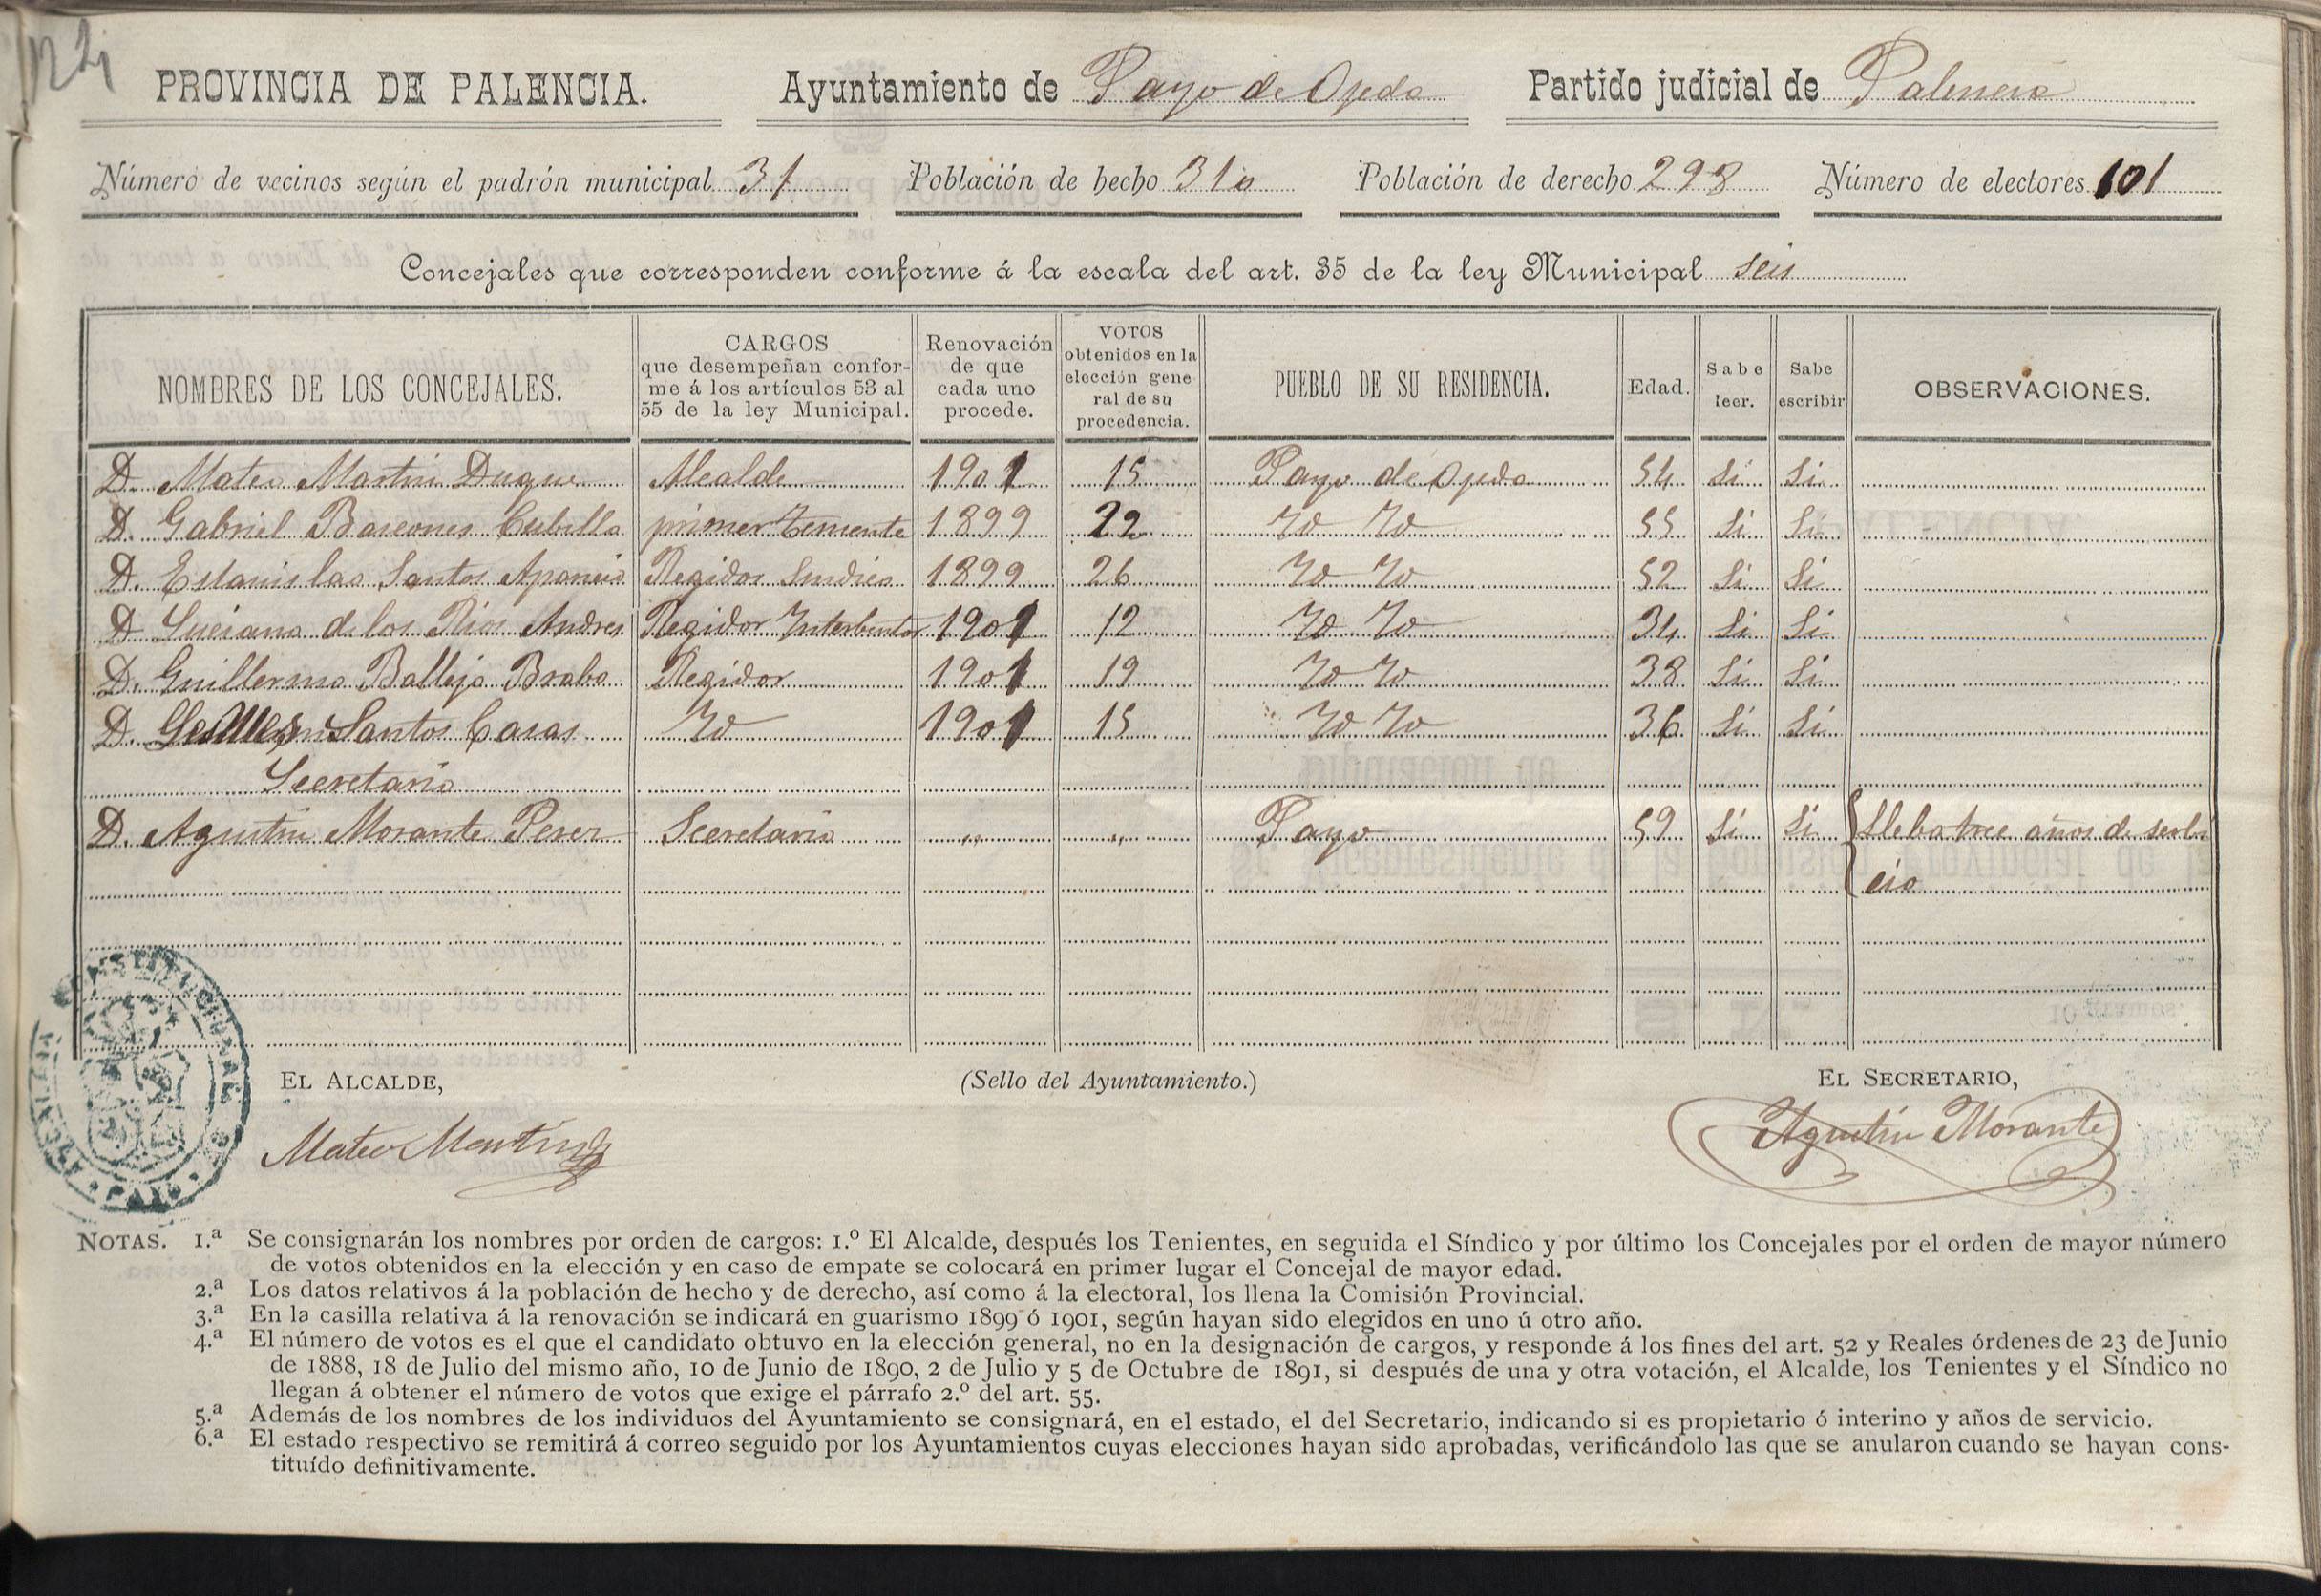 124
PROVINCIA DE PALENCIA. Ayuntamiento de Payo de Ojeda Partido judicial de Palencia
Número de vecinos según el padrón municipal 31 Población de hecho 310 Población de derecho 298 Número de electores 101
Concejales que corresponden conforme á la escala del art. 35 de la ley Municipal seis
NOMBRES DE LOS CONCEJALES. CARGOS que desempeñan conforme á los artículos 53 al 55 de la ley Municipal. Renovación de que cada uno procede. VOTOS obtenidos en la elección general de su procedencia. PUEBLO DE SU RESIDENCIA. Edad. Sabe leer. Sabe escribir OBSERVACIONES.
D. Mateo Martin Duque Alcalde 1901 15 Payo de Ojeda 54 Si Si
D. Gabriel Bascones Cubillo primer Teniente 1899 22 Yd Yd 55 Si Si
D. Estanislao Santos Aparicio Regidor Sindico 1899 26 Yd Yd 52 Si Si
D. Luciano de los Rios Andres Regidor Interbentor 1901 12 Yd Yd 34 Si Si
D. Guillermo Ballejo Brabo Regidor 1901 19 Yd Yd 38 Si Si
D. Santos Casas Yd 1901 15 Yd Yd 36 Si Si
Secretario
D. Agustin Morante Perez Secretario " " Payo 59 Si Si Lleba trece años de serbi
cio
EL ALCALDE, (Sello del Ayuntamiento.) EL SECRETARIO,
Mateo Martin Agustin Morante
NOTAS. 1.ª Se consignarán los nombres por orden de cargos: 1.º El Alcalde, después los Tenientes, en seguida el Síndico y por último los Concejales por el orden de mayor número
de votos obtenidos en la elección y en caso de empate se colocará en primer lugar el Concejal de mayor edad.
2.ª Los datos relativos á la población de hecho y de derecho, así como á la electoral, los llena la Comisión Provincial.
3.ª En la casilla relativa á la renovación se indicará en guarismo 1899 ó 1901, según hayan sido elegidos en uno ú otro año.
4.ª El número de votos es el que el candidato obtuvo en la elección general, no en la designación de cargos, y responde á los fines del art. 52 y Reales órdenes de 23 de Junio
de 1888, 18 de Julio del mismo año, 10 de Junio de 1890, 2 de Julio y 5 de Octubre de 1891, si después de una y otra votación, el Alcalde, los Tenientes y el Síndico no
llegan á obtener el número de votos que exige el párrafo 2.º del art. 55.
5.ª Además de los nombres de los individuos del Ayuntamiento se consignará, en el estado, el del Secretario, indicando si es propietario ó interino y años de servicio.
6.ª El estado respectivo se remitirá á correo seguido por los Ayuntamientos cuyas elecciones hayan sido aprobadas, verificándolo las que se anularon cuando se hayan cons-
tituído definitivamente.